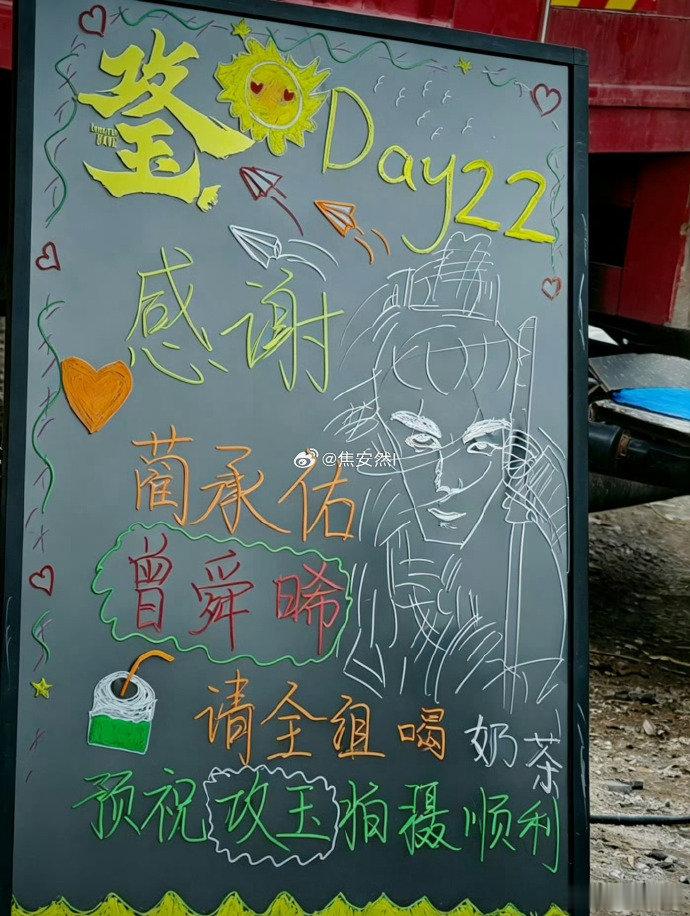 攻玉
Day22
感谢
@焦安然l
蔺承佑
曾舜晞
请全组喝奶茶
预祝攻玉拍摄顺利